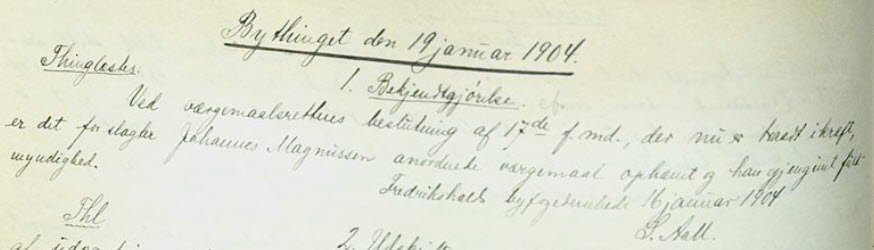 Bythinget den 19 januar 1904.
Thinglæstes:
1. Bekjendtgjørelse.
Ved værgemaalsrettens beslutning af 17de f. md., der nu er traadt i kraft,
er det for slagter Johannes Magnussen anordnede værgemaal ophævet og han gjengivet fuld
myndighed.
Fredrikshalds byfogedembede 16 januar 1904
S. Aall.
Thl
2. Udskrift
af